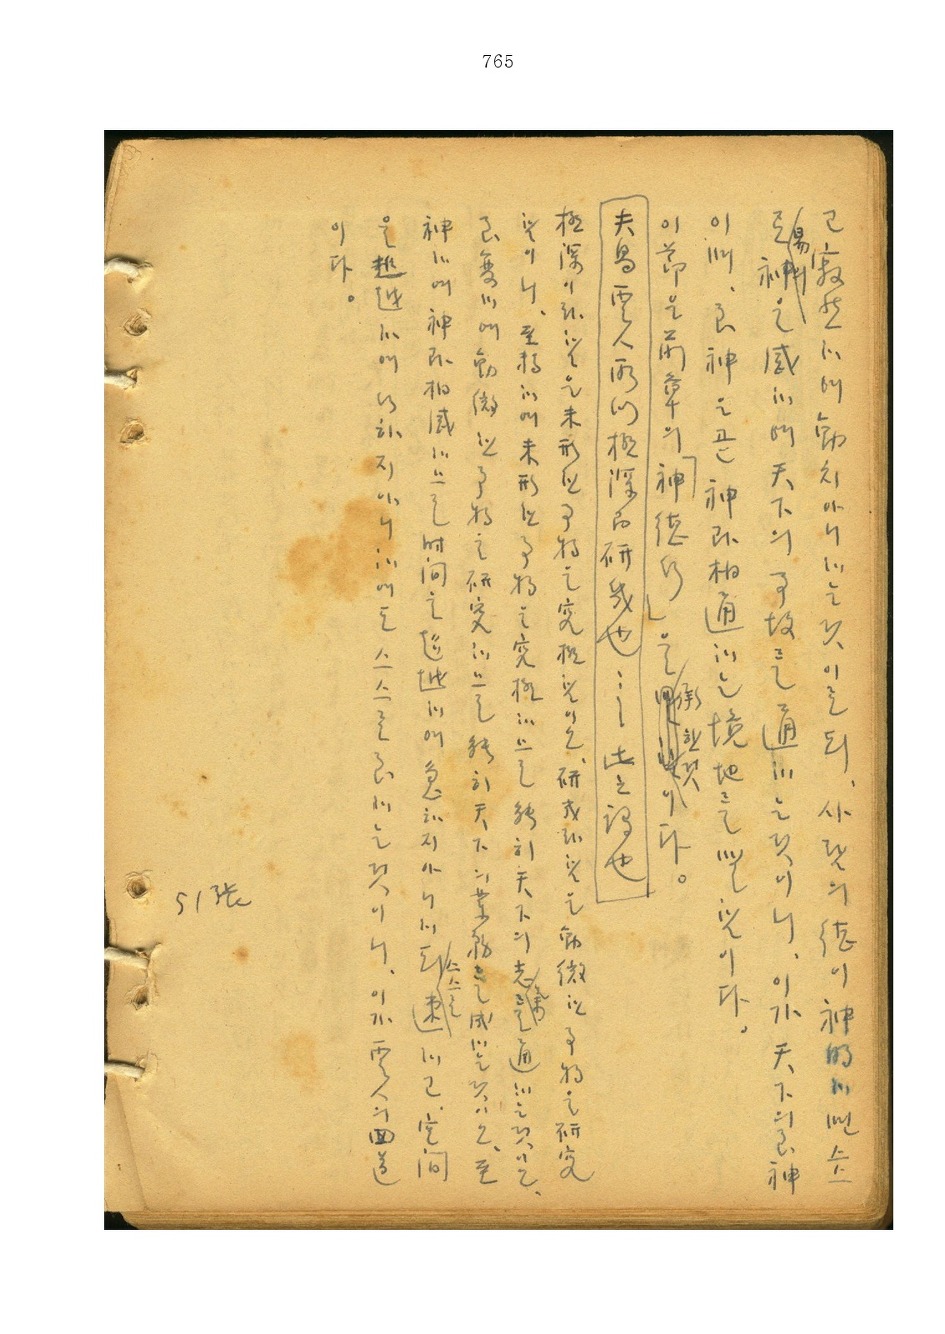 765
고 寂然하며 動치아니하는것이로되, 사람의 德이 神明하면 스스
로 神을 感하며 天下의 事故를 通하는것이니, 이가 天下의 良神
易
이며, 良神은곧 神과相通하는 境地를 이다.
이 節은 前章의 「神德行」을 承한것이다。
夫易聖人所以極深而研幾也……此之謂也
極深이라은 未形한 事物을 究極이오, 研幾라은 動微한 事物을 研究
이니, 至精하며 未形한 事物을 究極하므로 能히 天下의 志를 通하는것이오,
良變하며 動微한 事物을 研究하므로 能히 天下의 業務를 成하는것이오, 至
神하며 神과相感하므로 时间을 超越하며 急하지아니하되 스스로 速하고, 空间
을 超越하며 行하지아니하여도 스스로 하는것이니, 이가 聖人의 四道
이다。
51張